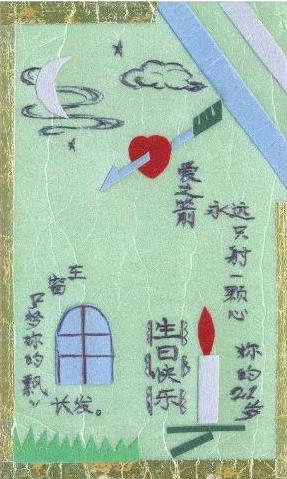 爱之箭
永远只射一颗心
窗
只梦妳的飘〃
长发。
生日快乐
妳的22岁